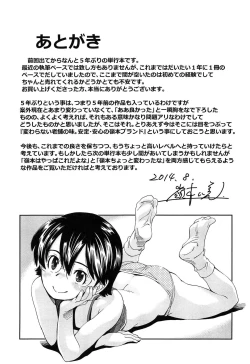 あとがき
前回出てからなんと5年ぶりの単行本です。
最近の執筆ペースでは致し方もありませんが、これまではだいたい1年に1冊の
ペースでだしていましたので、ここまで間が空いたのは初めての経験でして
ちゃんと売れてくれるかどうかとても不安です。
お買い上げくださった方、本当にありがとうございます。
5年ぶりという事は、つまり5年前の作品も入っているわけですが
案外現在とあまり変わっていなくて、「ああ良かった」と一瞬胸をなで下ろした
ものの、よくよく考えれば、それもある意味かなり問題アリなわけでして
どうしたものかと思いましたが、そこはそれ、とりあえずそこには目をつぶって
「変わらない老舗の味。安定・安心の猫本ブランド」という事にしておこうと思います。
今後も、これまでの良さを保ちつつ、もうちょっと高いレベルへと持っていけたらと
考えています。もしかしたら次の単行本も少し間があいてしまうかもしれませんが
な作品をご覧いただければと考えております。
2014.8.